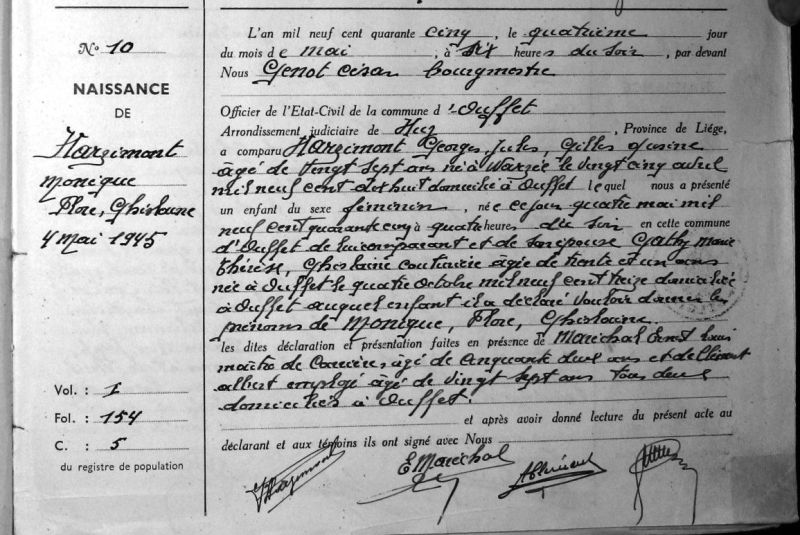 N° 10
NAISSANCE
DE
Harzimont
Monique
Flore, Ghislaine
4 Mai 1945
Vol. : I
Fol. : 154
C. : 5
du registre de population
L'an mil neuf cent quarante cinq, le quatrième jour
du mois de mai, à six heures du soir, par devant
Nous Genot César bourgmestre
Officier de l'Etat-Civil de la commune d'Ouffet
Arrondissement judiciaire de Huy, Province de Liége,
a comparu Harzimont Georges, Jules, Gilles
âgé de vingt sept ans né à Warzée le vingt cinq avril
mil neuf cent dix huit domicilié à Ouffet lequel nous a présenté
un enfant du sexe féminin, née ce jour quatre mai mil
neuf cent quarante cinq à quatre heures du soir en cette commune
d'Ouffet de lui comparant et de son épouse Gathy Marie
thérèse, Ghislaine couturière âgée de trente et un ans
née à Ouffet le quatre Octobre mil neuf cent treize domiciliée
à Ouffet auquel enfant il a déclaré vouloir donner les
prénoms de Monique, Flore, Ghislaine.
les dites déclaration et présentation faites en présence de Maréchal Ernest Louis
maître de Carrières âgé de cinquante deux ans et de Clément
albert employé âgé de vingt sept ans tous deux
domiciliés à Ouffet.
et après avoir donné lecture du présent acte au
déclarant et aux témoins ils ont signé avec Nous
Harzimont E Maréchal